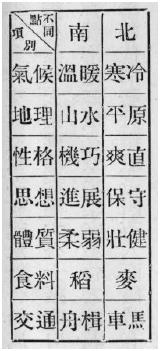 不同點 項別 南 北
氣候 溫暖 寒冷
地理 山水 平原
性格 機巧 爽直
思想 進展 保守
體質 柔弱 壯健
食料 稻 麥
交通 舟楫 車馬